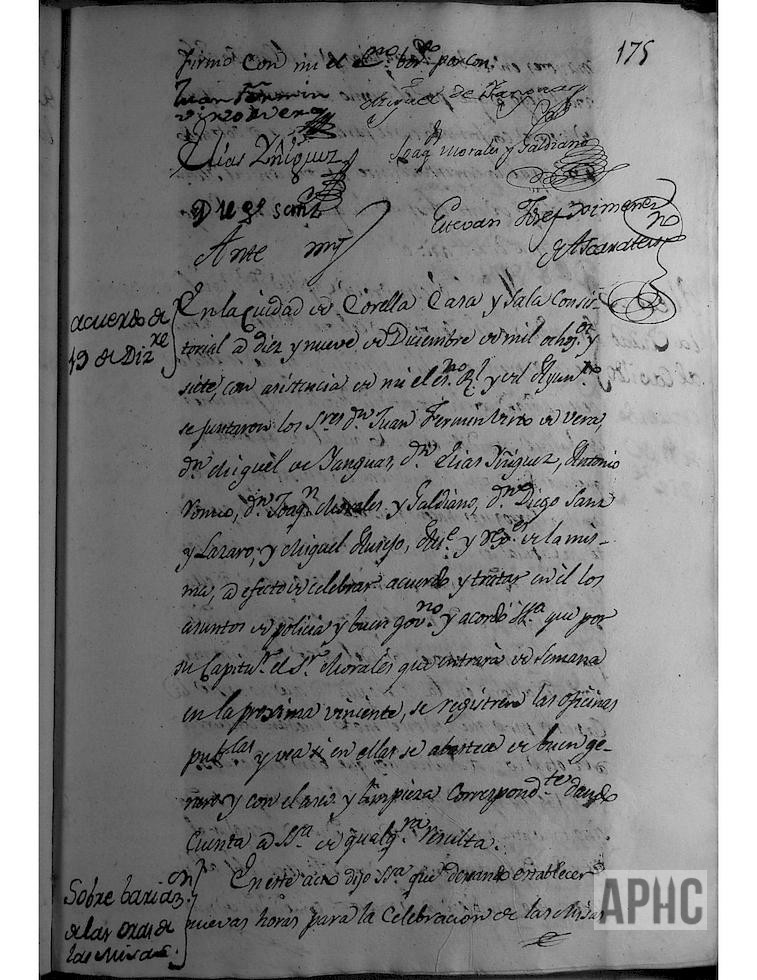 175
firmó con mi el
Juan Fermin
Virto de Vera
Miguel de Yanguas
Elias Yñiguez
Joaqn Morales y Galdiano
Diego Sanz
Estevan Josef Ximenez
de Ascarate
Ante mi
acuerdo de
19 de Dizre
En la Ciudad de Corella Casa y Sala Consis-
torial a diez y nueve de Diciembre de mil ochos y
siete, con asistencia de mi el esno Rl y del Ayunto
se juntaron los Sres dn Juan Fermin Virto de Vera,
dn Miguel de Yanguas, dn Elias Yñiguez, Antonio
dn Joaqn Morales y Galdiano, dn Diego Sanz
y Lazaro, y Miguel y de la mis-
ma, a efecto de celebrar acuerdo y tratar en él los
asuntos de policia y buen govno y acordó que por
su Capitur el Sr Morales que entrará de Semana
en la proxima viniente, se registren las oficinas
pubcas y vea si en ellas se abastece de buen ge-
nero y con el aseo y limpieza correspondte dando
Cuenta a de qualqra resulta.
Sobre bariazon
de las oras de
las Misas
En este acto dijo que deseando establecer
nuevas horas para la Celebracion de las Misas
APHC